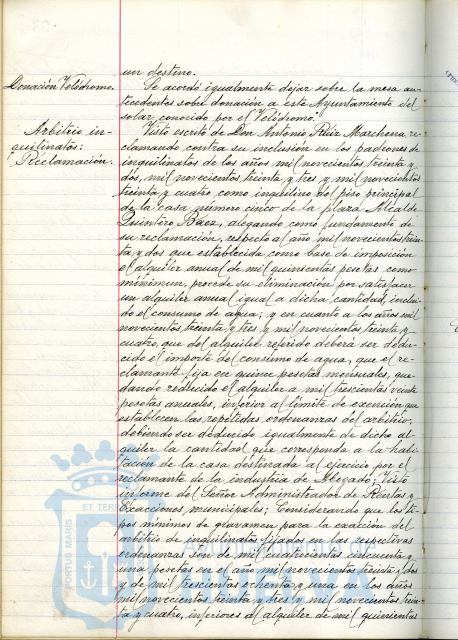 un destino.
Donación Velódromo.
Se acordó igualmente dejar sobre la mesa an-
tecedentes sobre donación a este Ayuntamiento del
solar conocido por el Velódromo.
Arbitrio in-
quilinatos:
Reclamación.
Visto escrito de Don Antonio Ruiz Marchena re-
clamando contra su inclusión en los padrones de
inquilinatos de los años mil novecientos treinta y
dos, mil novecientos treinta y tres y mil novecientos
treinta y cuatro como inquilino del piso principal
de la casa número cinco de la plaza Alcalde
Quintero Báez, alegando como fundamento de
su reclamación, respecto al año mil novecientos trein-
ta y dos que establecida como base de imposición
el alquiler anual de mil quinientas pesetas como
mínimum, procede su eliminación por satisfacer
un alquiler anual igual a dicha cantidad, inclui-
do el consumo de agua; y en cuanto a los años mil
novecientos treinta y tres y mil novecientos treinta y
cuatro, que del alquiler referido deberá ser dedu-
cido el importe del consumo de agua, que el re-
clamante fija en quince pesetas mensuales, que-
dando reducido el alquiler a mil trescientas veinte
pesetas anuales, inferior al límite de exención que
establecen las repetidas ordenanzas del arbitrio,
debiendo ser deducido igualmente de dicho al-
quiler la cantidad que corresponda a la habi-
tación de la casa destinada al ejercicio por el
reclamante de la industria de Abogado; Visto
informe del Señor Administrador de Rentas y
Exacciones municipales; Considerando que los ti-
pos mínimos de gravamen para la exacción del
arbitrio de inquilinatos fijados en las respectivas
ordenanzas son de mil cuatrocientas cincuenta y
una pesetas en el año mil novecientos treinta y dos
y de mil trescientas ochenta y una en los años
mil novecientos treinta y tres y mil novecientos trein-
ta y cuatro, inferiores al alquiler de mil quinientas
PORTUS MARIS ET TERR